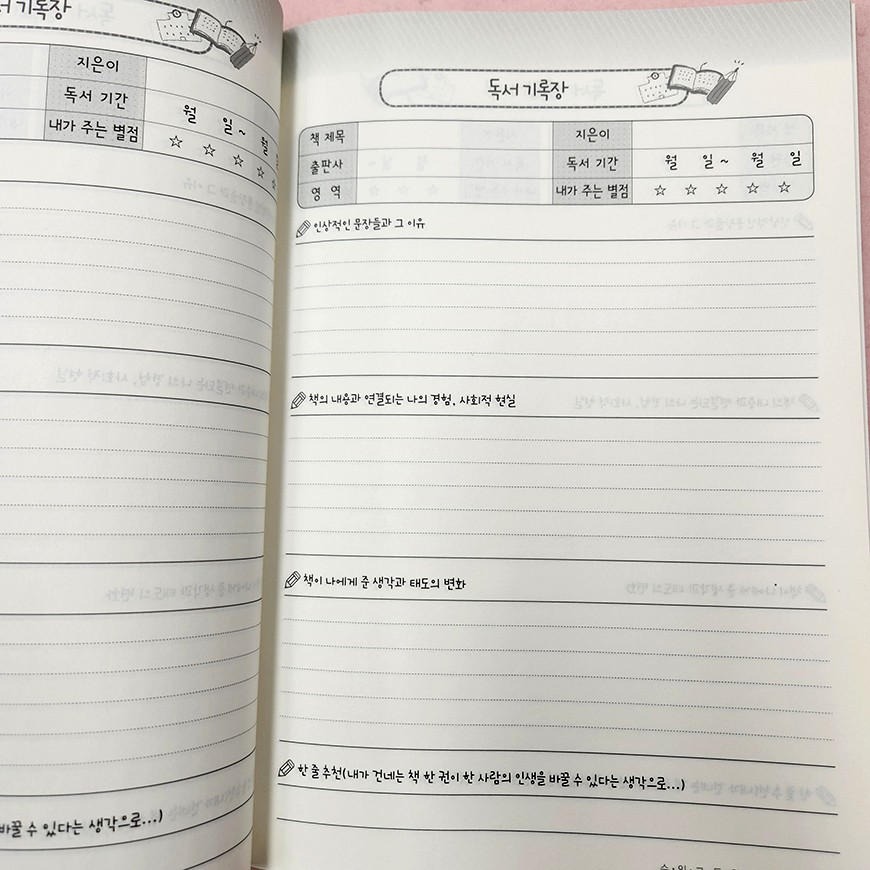 서 기록장
지은이
독서 기간 월 일 ~ 월
내가 주는 별점 ☆ ☆ ☆ ☆ ☆
바꿀 수 있다는 생각으로...)
독서 기록장
책 제목 지은이
출판사 독서 기간 월 일 ~ 월 일
영 역 내가 주는 별점 ☆ ☆ ☆ ☆ ☆
인상적인 문장들과 그 이유
책의 내용과 연결되는 나의 경험, 사회적 현실
책이 나에게 준 생각과 태도의 변화
한 줄 추천(내가 건네는 책 한 권이 한 사람의 인생을 바꿀 수 있다는 생각으로...)